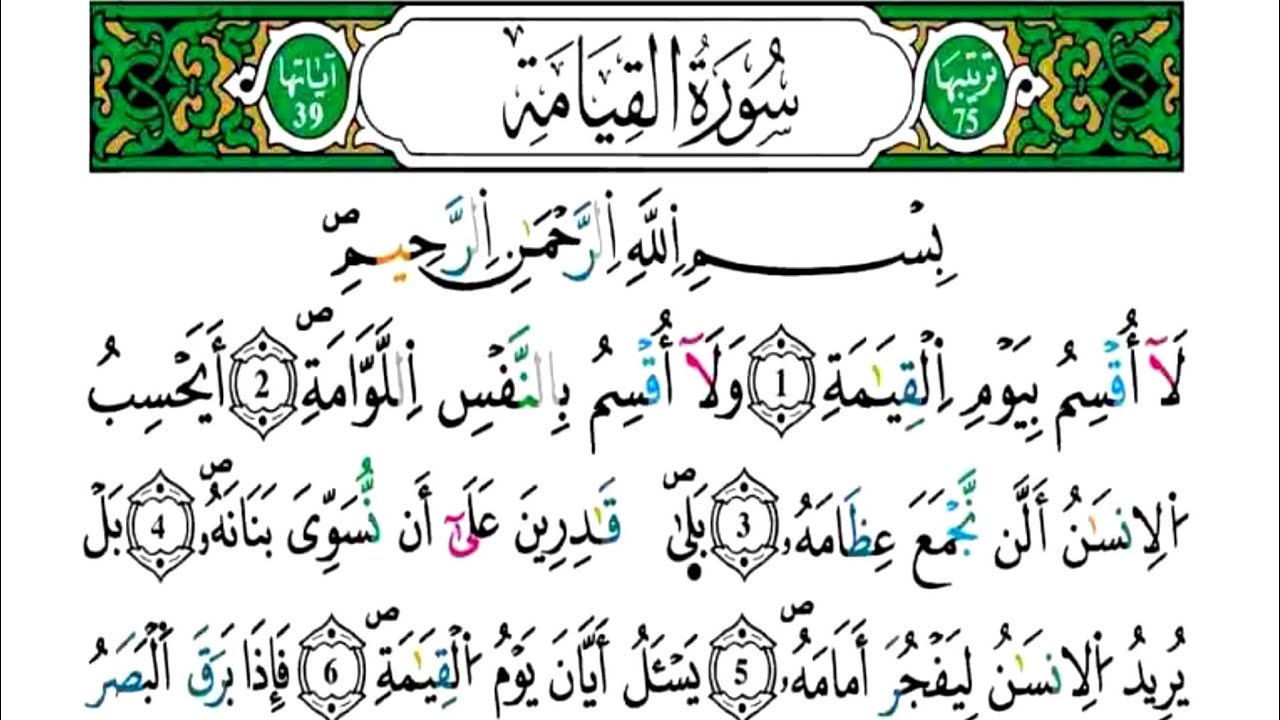 ترتيبها 75
سُورَةُ الْقِيَامَةِ
آياتها 39
بِسْمِ اِ۬للَّهِ اِ۬لرَّحْمَٰنِ اِ۬لرَّحِيمِ ص
لَآ أُقْسِمُ بِيَوْمِ اِ۬لْقِيَٰمَةِ 1 وَلَآ أُقْسِمُ بِالنَّفْسِ اِ۬للَّوَّامَةِ ص 2 أَيَحْسِبُ
اُ۬لِانسَٰنُ أَلَّن نَّجْمَعَ عِظَامَهُۥ 3 بَلَىٰ ص قَٰدِرِينَ عَلَىٰٓ أَن نُّسَوِّىَ بَنَانَهُۥ ص 4 بَلْ
يُرِيدُ اُ۬لِانسَٰنُ لِيَفْجُرَ أَمَامَهُۥ ص 5 يَسْـَٔلُ أَيَّانَ يَوْمُ اُ۬لْقِيَٰمَةِ ص 6 فَإِذَا بَرَقَ اَ۬لْبَصَرُ